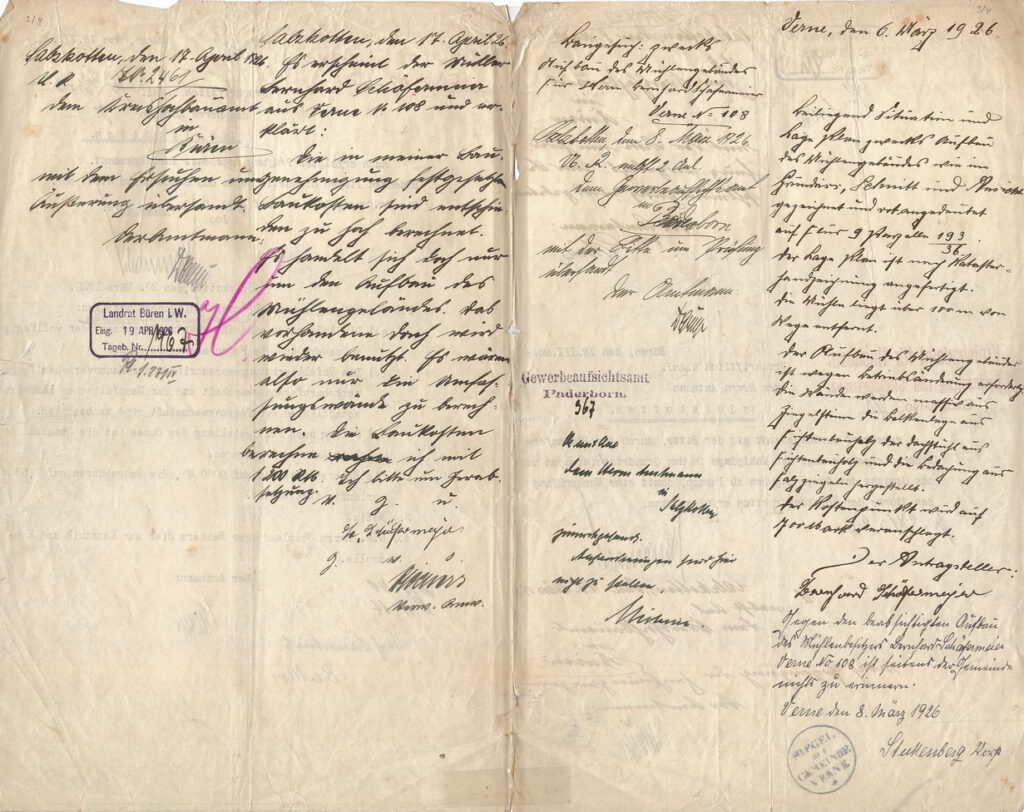 Salzkotten, den 17. April 1926
No. 2461
U. R.
dem Kreishochbauamt
in
Büren
mit dem Ersuchen um
Äußerung übersandt.
Der Amtmann
Landrat Büren i.W.
Eing. 19 APR 1926
Tageb. Nr.
Salzkotten, den 17. April 26
Es erscheint der Müller
Bernhard Schäfermeier
aus Verne N 108 und er-
klärt:
Die in meiner Bau-
genehmigung festgesetzten
Baukosten sind entschie-
den zu hoch berechnet.
Es handelt sich doch nur
um den Aufbau des
Mühlengebäudes. Das
vorhandene Dach wird
wieder benutzt. Es wären
also nur die Umfas-
sungswände zu berech-
nen. Die Baukosten
berechne ich mit
Ich bitte um Herab-
setzung.
v. g. u.
Schäfermeier
g. w. o.
Baugesuch zwecks
Aufbau des Mühlengebäudes
für Herrn Bernhard Schäfermeier
Verne No 108
Salzkotten, den 8. März 1926.
U. R. nebst 2 Anl.
dem Gewerbeaufsichtsamt
in Paderborn
mit der Bitte um Prüfung
übersandt
Der Amtmann
Gewerbeaufsichtsamt
Paderborn.
967
dem Herrn Amtmann
in
Salzkotten
zurückgesandt.
Anforderungen sind hier
nicht zu stellen.
Verne, den 6. März 1926.
Beiliegend Situation und
Lage Plan zwecks Aufbau
des Mühlengebäudes wie im
Grundriss, Schnitt und Ansicht
gezeichnet und rot angedeutet
auf Flur 9 Parzelle 193/36
Der Lage Plan ist nach Kataster-
handzeichnung angefertigt.
Die Mühle liegt über 100 m vom
Wege entfernt.
Der Aufbau des Mühlengebäudes
ist wegen Betriebsänderung erforderlich
die Wände werden massiv aus
Ziegelsteine die Balkenlage aus
Fichtenholz der Dachstuhl aus
Fichtenholz und die Bedachung aus
Falzziegeln hergestellt.
Der Kostenpunkt wird auf
Mark veranschlagt.
Der Antragsteller:
Bernhard Schäfermeier
Gegen den beabsichtigten Aufbau
des Mühlenbesitzers Bernhard Schäfermeier
Verne No 108 ist seitens der Gemeinde
nichts zu erinnern.
Verne den 8. März 1926
Stukenberg Vorst
SIEGEL
DER
GEMEINDE
VERNE